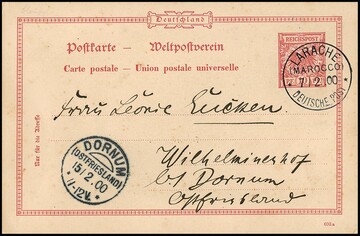 Deutschland
Postkarte — Weltpostverein
Carte postale — Union postale universelle
REICHSPOST
LARACHE
(MAROCCO)
7/2.00
DEUTSCHE POST
Nur für die Adresse
Frau Leonie Eucken.
Wilhelminenhof
bei Dornum
Ostfriesland
DORNUM
(OSTFRIESLAND)
15/2.00
11-12V.